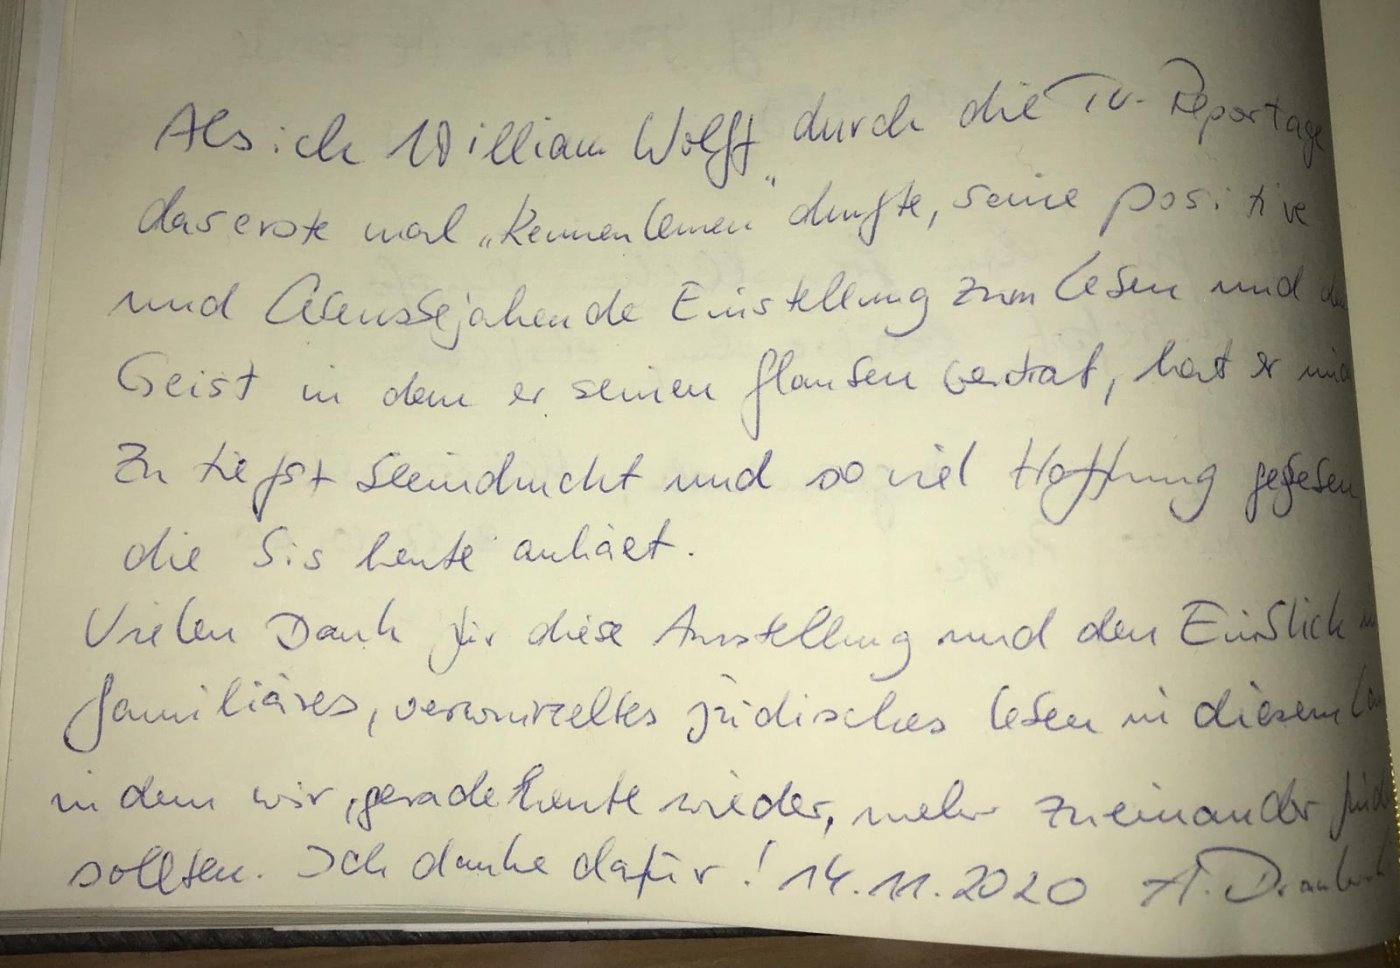 Als ich William Wolff durch die TV-Reportage
das erste mal „kennenlernen“ durfte, seine positive
und lebensbejahende Einstellung zum Leben und
Geist in dem er seinen Glauben vertrat, hat er
zu tiefst beeindruckt und so viel Hoffnung gegeben,
die bis heute anhält.
Vielen Dank für diese Ausstellung und den Einblick
familiäres, verwurzeltes jüdisches Leben in diesem
in dem wir, gerade heute wieder, mehr zueinander
sollten. Ich danke dafür! 14.11.2020 A.